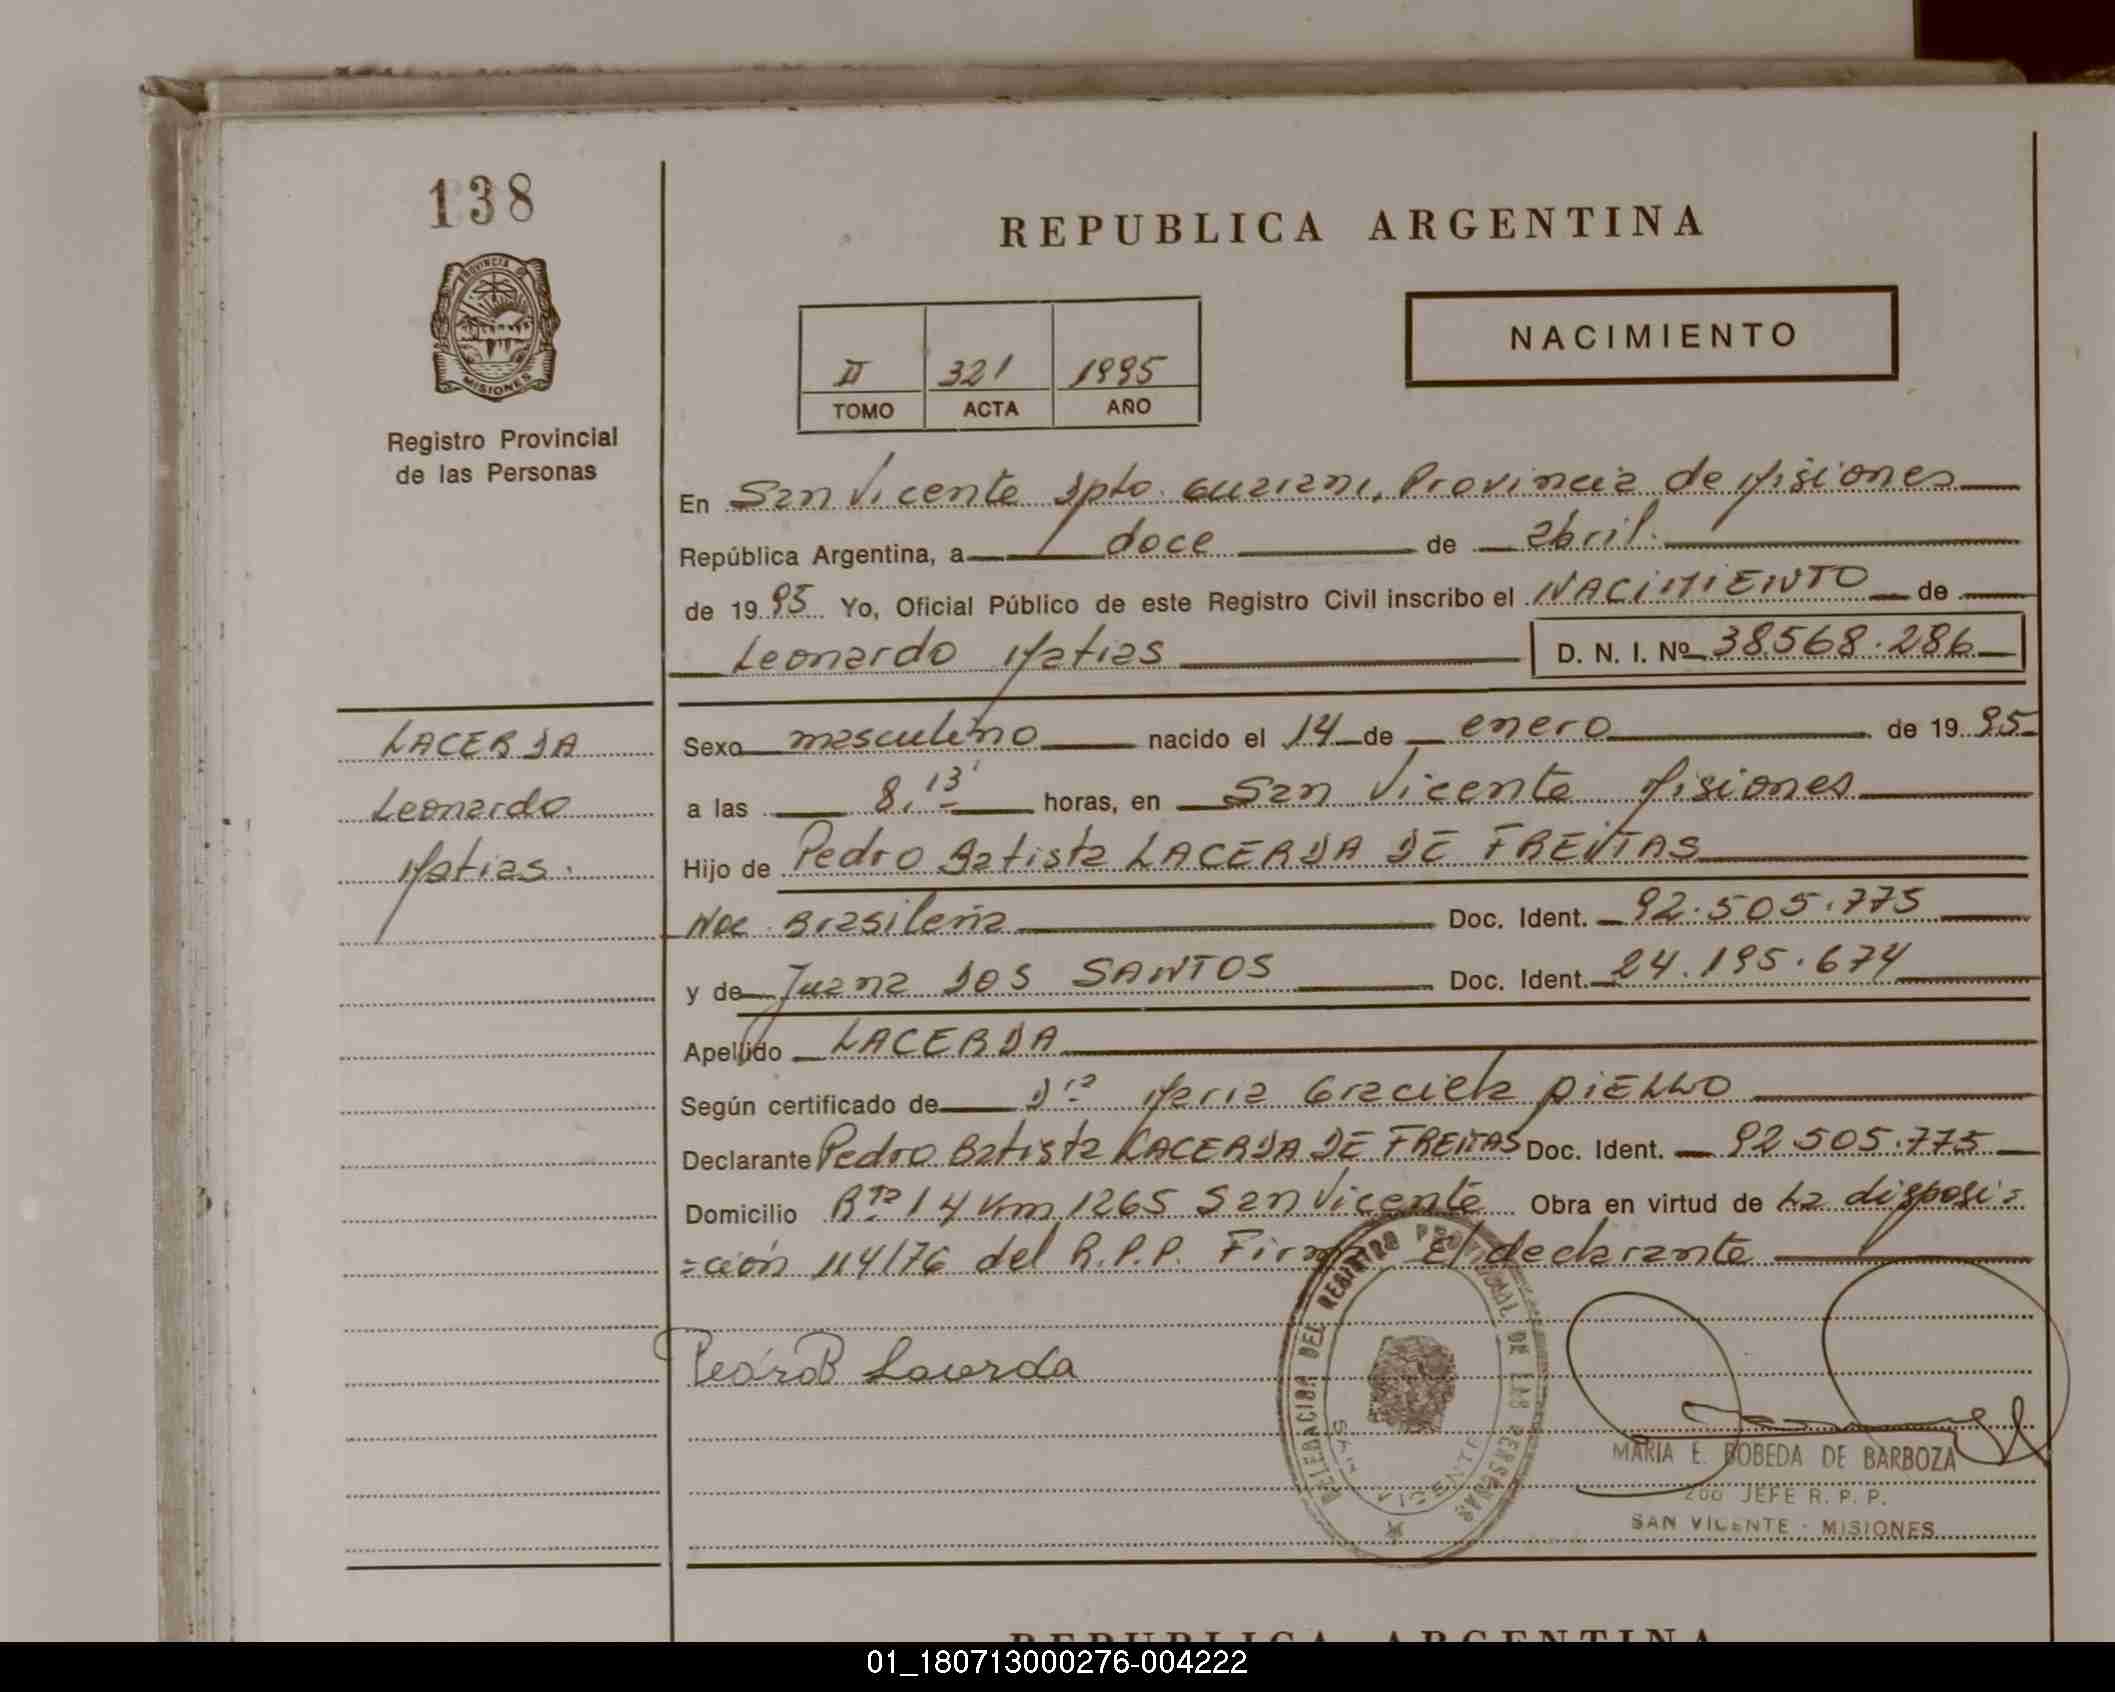 138
PROVINCIA DE
MISIONES
Registro Provincial
de las Personas
LACERDA
Leonardo
Matias.
REPUBLICA ARGENTINA
NACIMIENTO
II 321 1995
TOMO ACTA AÑO
En San Vicente Dpto. Guarani, Provincia de Misiones
República Argentina, a doce de abril.
de 1995 Yo, Oficial Público de este Registro Civil inscribo el NACIMIENTO de
Leonardo Matias D. N. I. Nº 38568.286
Sexo masculino nacido el 14 de enero de 1995
a las 8,13' horas, en San Vicente Misiones
Hijo de Pedro Batista LACERDA DE FREITAS
Nac. Brasileña Doc. Ident. 92.505.775
y de Juana DOS SANTOS Doc. Ident. 24.195.674
Apellido LACERDA
Según certificado de Dra Maria Graciela PIELLO
Declarante Pedro Batista LACERDA DE FREITAS Doc. Ident. 92.505.775
Domicilio Rta 14 Km 1265 San Vicente Obra en virtud de La disposi=
=ción 114/76 del R.P.P. Firma El declarante
Pedro B Lacerda
DELEGACION DEL REGISTRO PROVINCIAL DE LAS PERSONAS
SAN VICENTE
MARIA E. BOBEDA DE BARBOZA
2do JEFE R. P. P.
SAN VICENTE - MISIONES
REPUBLICA ARGENTINA
01_180713000276-004222